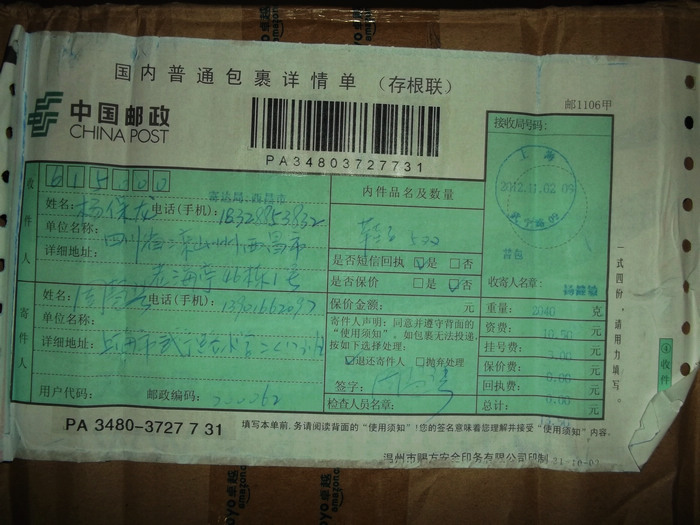 国内普通包裹详情单 (存根联)
中国邮政
CHINA POST
邮1106甲
PA34803727731
接收局号码:
上海
2012.11.02 09
收件人
615000
寄达局:西昌市
姓名: 杨保龙 电话(手机):
单位名称:
四川省凉山州西昌市
详细地址:
46栋1号
内件品名及数量
是否短信回执 ☑是 □否
是否保价 □是 ☑否
保价金额: 元
首包
收寄人名章:
重量: 2040 克
资费: 10.50 元
挂号费: 3.00 元
保价费: 0.00 元
回执费: 0.00 元
总计: 元
寄件人
姓名: 电话(手机):
单位名称:
详细地址:
用户代码: 邮政编码:
寄件人声明:同意并遵守背面的
“使用须知”。如包裹无法投递,
按如下选择处理:
☑退还寄件人 □抛弃处理
签字:
检查人员名章:
一式四份,请用力填写。
④收件
PA 3480-3727 7 31
填写本单前,务请阅读背面的“使用须知”!您的签名意味着您理解并接受“使用须知”内容。
温州市赐方安全印务有限公司印制
卓越
amazon
joyo卓越
amazon.c